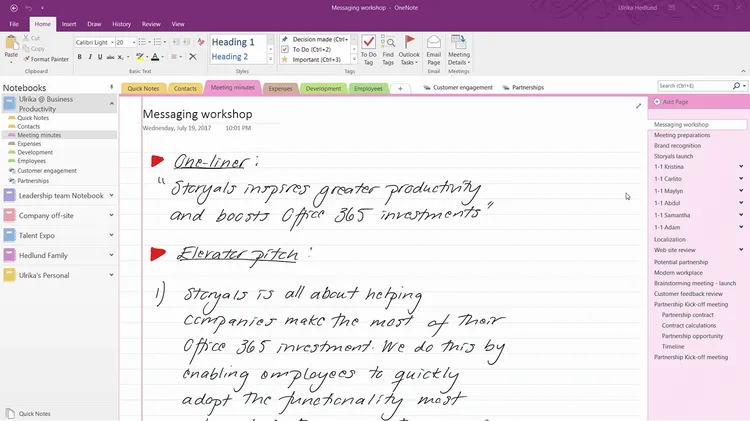 Messaging workshop - OneNote
Ulrika Hedlund
File Home Insert Draw History Review View
Paste
Cut
Copy
Format Painter
Clipboard
Calibri Light 20
B I U abc
Basic Text
Heading 1
Heading 2
Styles
Decision made (Ctrl+
To Do (Ctrl+2)
Important (Ctrl+3)
Tags
To Do Tag
Find Tags
Outlook Tasks
Email Page
Email
Meeting Details
Meetings
Notebooks
Ulrika @ Business Productivity
Quick Notes
Contacts
Meeting minutes
Expenses
Development
Employees
Customer engagement
Partnerships
Leadership team Notebook
Company off-site
Talent Expo
Hedlund Family
Ulrika's Personal
Quick Notes
Quick Notes Contacts Meeting minutes Expenses Development Employees + Customer engagement Partnerships
Search (Ctrl+E)
Messaging workshop
Wednesday, July 19, 2017 10:01 PM
One-liner :
"Storyals inspires greater productivity
and boosts Office 365 investments"
Elevator pitch :
1) Storyals is all about helping
companies make the most of their
Office 365 investment. We do this by
enabling employees to quickly
adopt the functionality most
Add Page
Messaging workshop
Meeting preparations
Brand recognition
Storyals launch
1-1 Kristina
1-1 Carlito
1-1 Maylyn
1-1 Abdul
1-1 Samantha
1-1 Adam
Localization
Web site review
Potential partnership
Modern workplace
Brainstorming meeting - launch
Customer feedback review
Partnership Kick-off meeting
Partnership contract
Contract calculations
Partnership opportunity
Timeline
Partnership Kick-off meeting